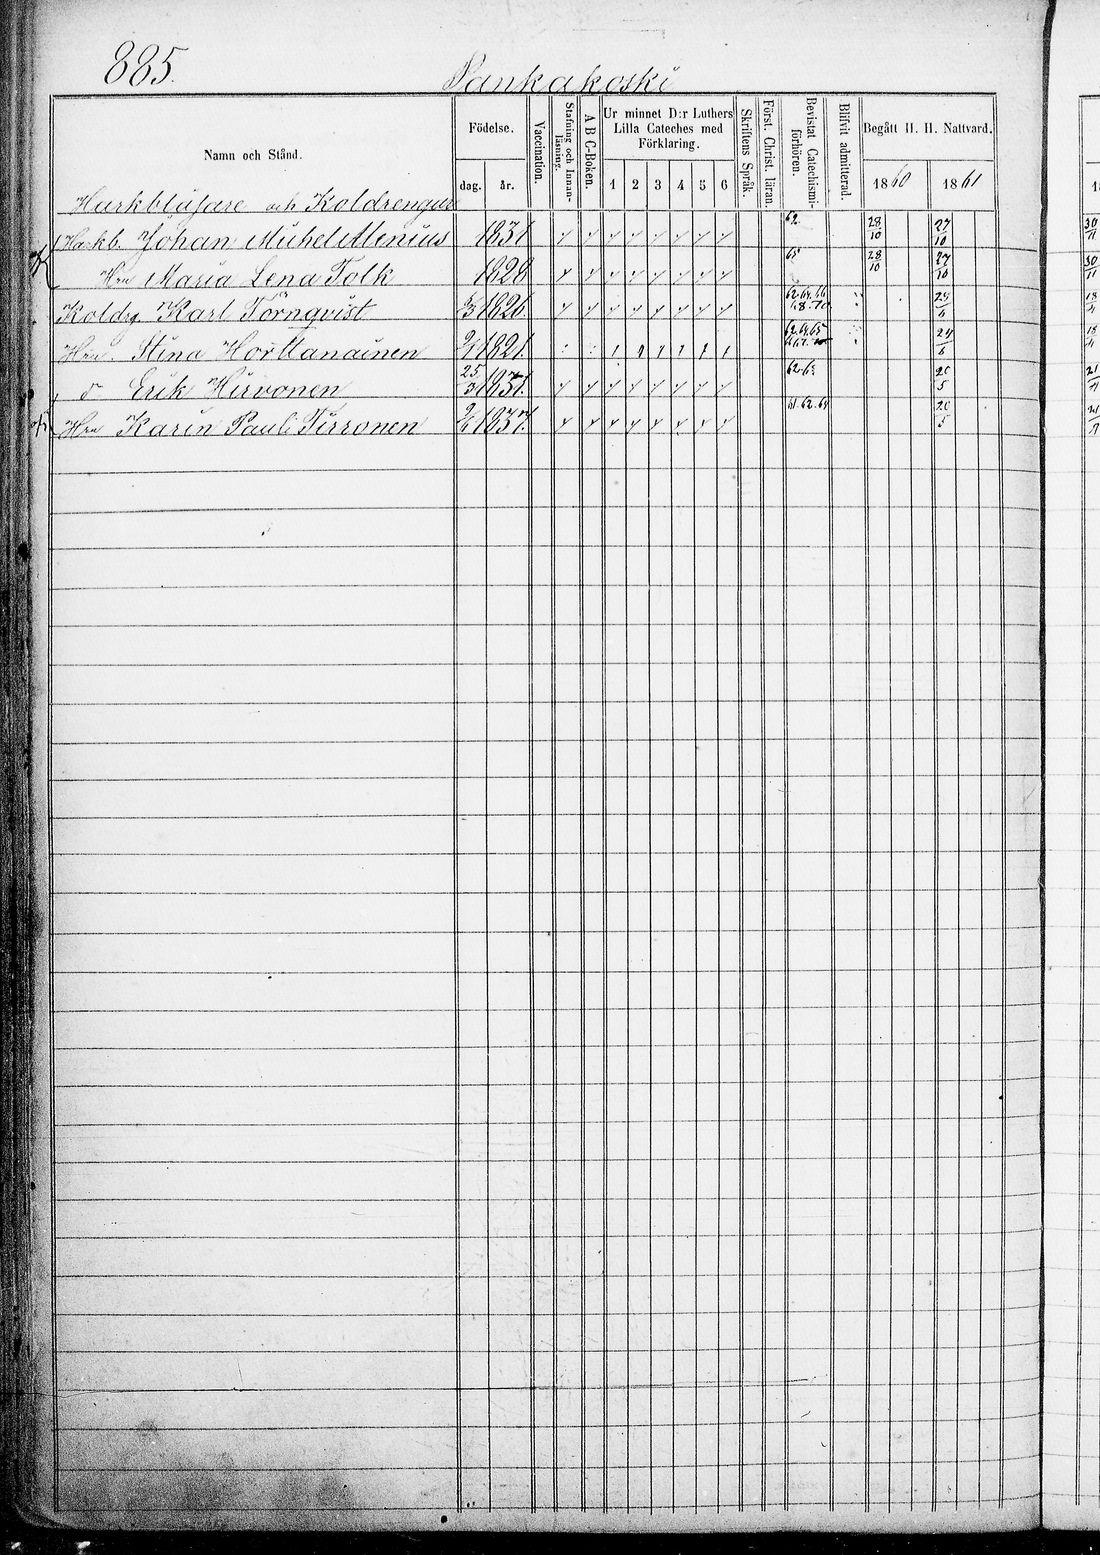 885.
Pankakoski
Namn och Stånd.
Födelse.
dag. år.
Vaccination.
Stafning och Innan-läsning.
A B C-Boken.
Ur minnet D:r Luthers Lilla Cateches med Förklaring.
1 2 3 4 5 6
Skriftens Språk.
Först. Christ. läran.
Bevistat Catechismi-förhören.
Blifvit admitterad.
Begått H. H. Nattvard.
1860 1861
och Koldrengar
Johan Michel Alenius 1831 62. 28/10 27/10 30/11
Hru Maria Lena Tolk 1828 65 28/10 27/10 30/11
Koldrg Karl Törnqvist 1826. 18/4
Hru. Stina Horttanainen 1821. 62.64.65 18/4
Erik Hirvonen 25/3 1831. 62.63 20/5
Hru Karin Pauls: Tirronen 1837. 61.62.64 20/5